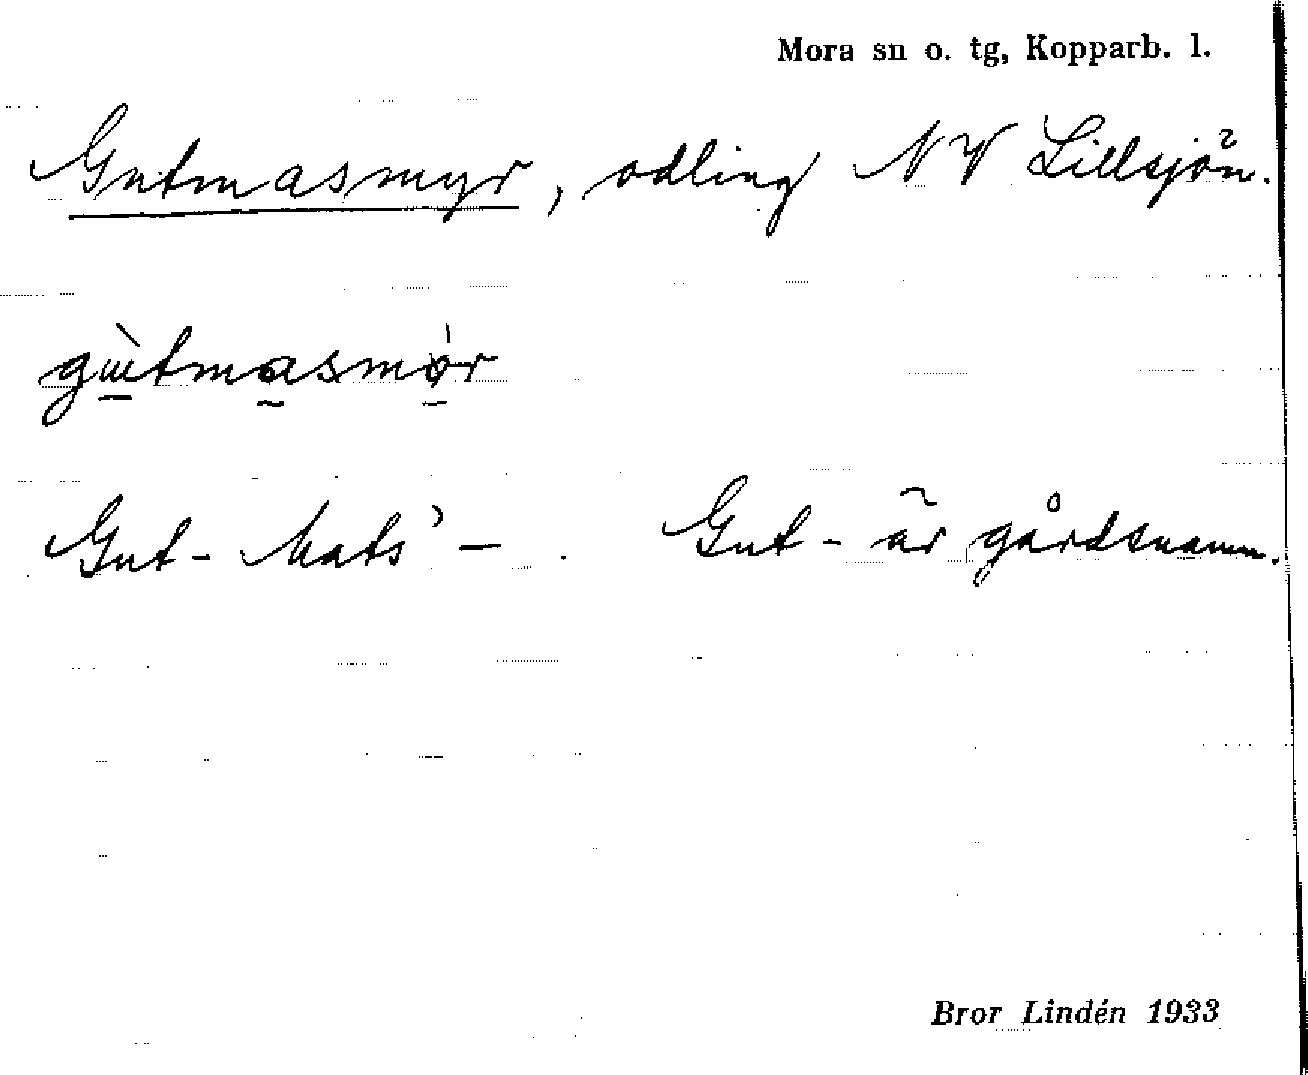 Mora sn o. tg, Kopparb. l.
Gutmasmyr, odling NV Lillsjön.
gɯ̀tmasmør
Gut-Mats' – . Gut- är gårdsnamn.
Bror Lindén 1933